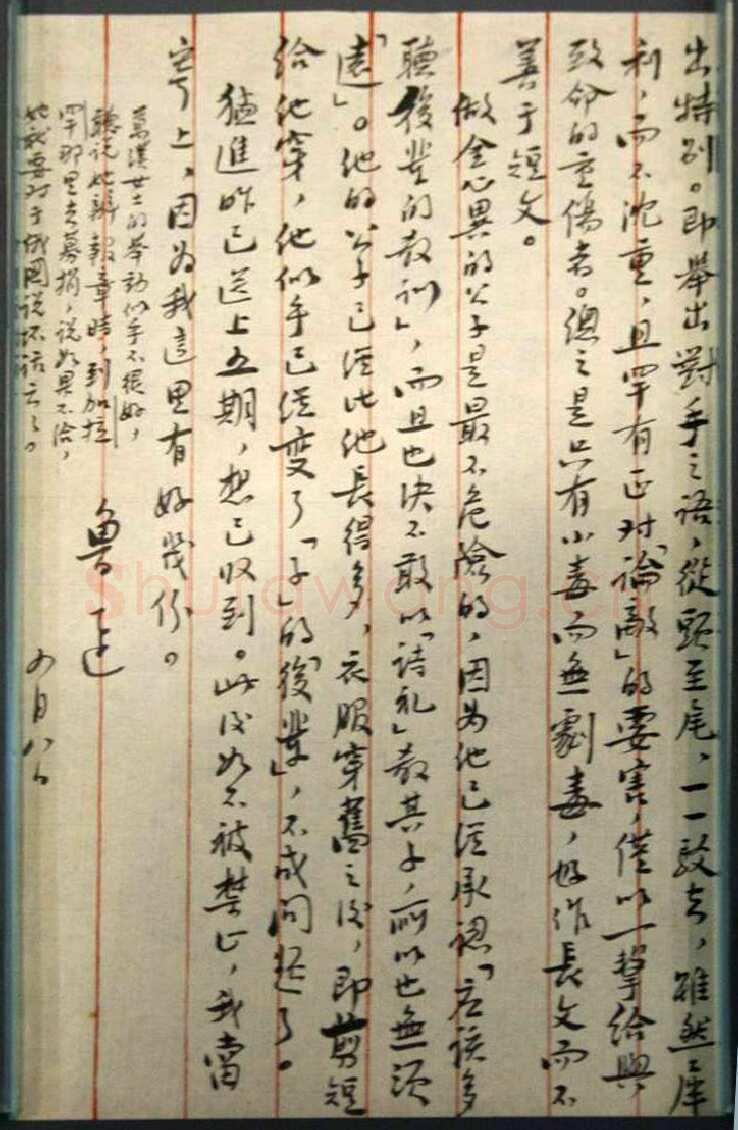 出特别。即举出對手之语，從頭至尾，一一駁去，雖然犀
利，而不沈重，且罕有正对「論敵」的要害，僅以一擊给與
致命的重傷者。總之是只有小毒而無劇毒，好作長文而不
善于短文。
做金心異的公子是最不危險的，因为他已经承認「应该多
聽後輩的教训」，而且也决不敢以「詩礼」教其子，所以也無须
「遠」。他的公子已经比他長得多，衣服穿舊之後，即剪短
给他穿，他似乎已经变了「子」的「後輩」，不成问题了。
猛進昨已送上五期，想已收到。此後如不被禁止，我當
寄上，因为我這里有好幾份。
魯迅
五月八日
萬璞女士的举动似乎不很好，
聽说她辦報章時，到加拉
罕那里去募捐，说如果不给，
她就要对于俄國说坏话云云。
shufawang.cn